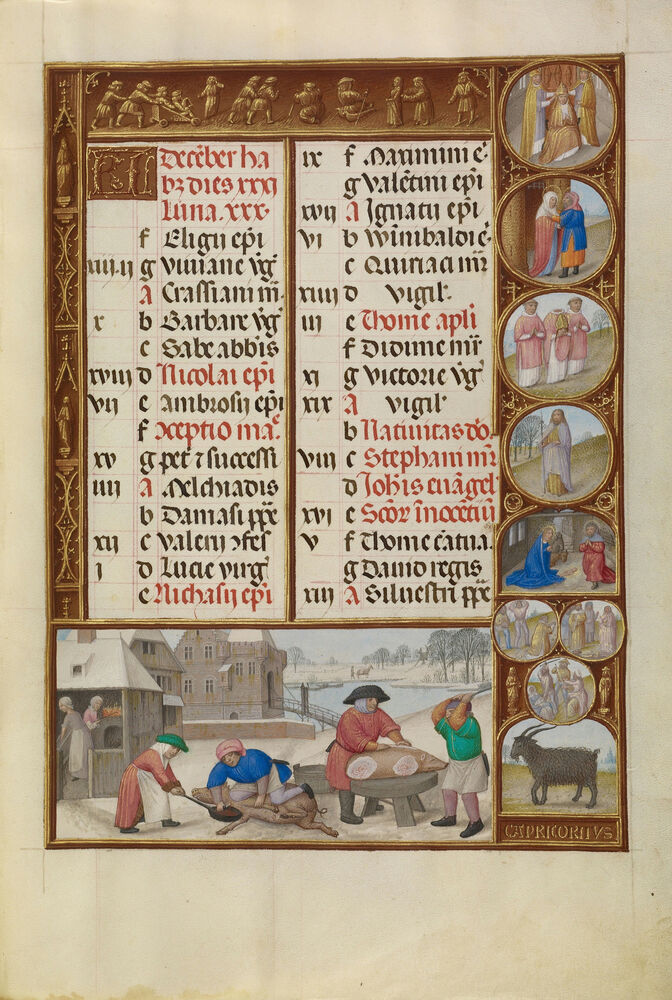 KL Decēber ha
bȝ dies xxxi
Luna. xxx.
f Eligii epi
xiii.ii g Viviane vg̃
A Crassiani mr̃.
x b Barbare vg̃
c Sabe abb̃is
xviii d Nicolai epi
vii e Ambrosii epi
f ɔceptio ma.
xv g pet̃ ⁊ successi
iiii A Melchiadis
b Damasi ppe
xii c Valerii ɔfes
i d Lucie virg̃
e Nichasii epi
ix f Maximini ẽ
g Valētini epi
xvii A Ignatii epi
vi b Winibaldi ẽ
c Quiriaci mr̃
xiiii d Vigil̃
iii e Thome apli
f Didime mr̃
xi g Victorie vg̃
xix A Vigil̃
b Nativitas dõ
viii c Stephani mr̃
d Joh̃is euāgel̃
xvi e Scõr inocētiũ
v f Thome cãtua.
g David regis
xiii A Silvestri ppe
CAPRICORNVS